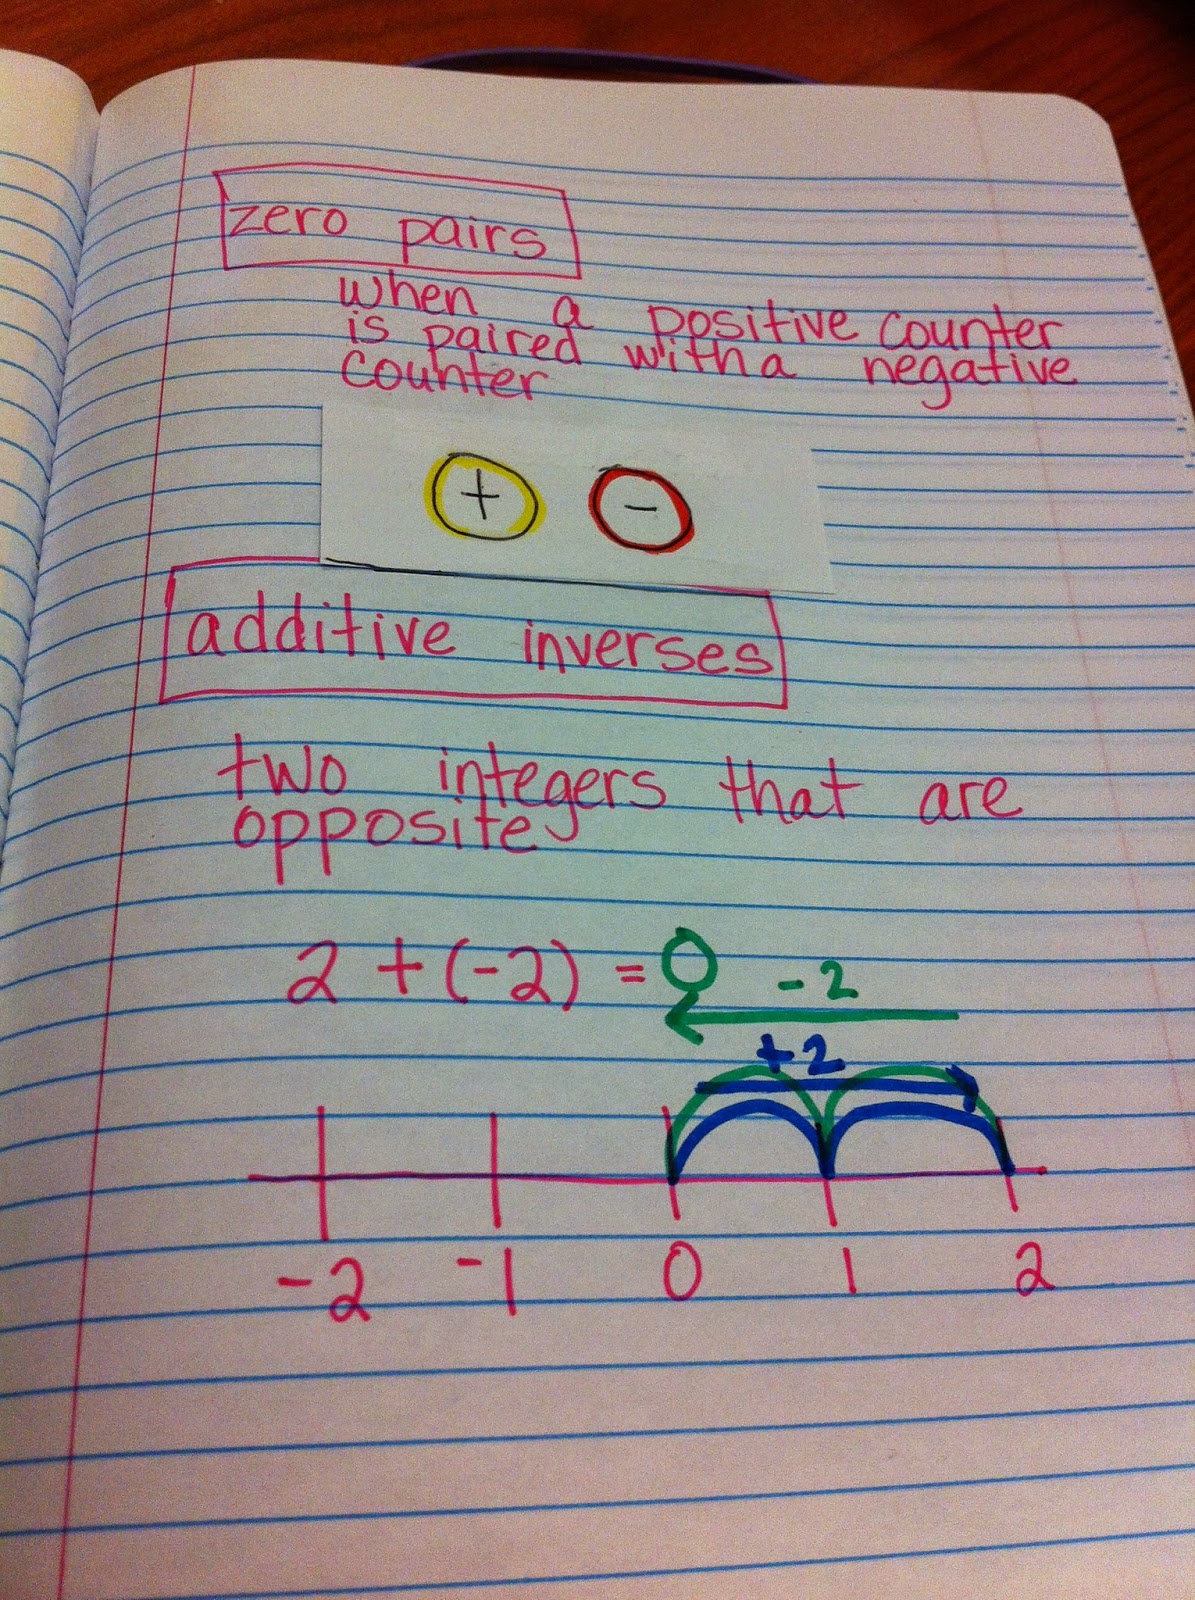 zero pairs
when a positive counter
is paired with a negative
counter
+ -
additive inverses
two integers that are
opposite
2 + (-2) = 0 -2
+2
-2 -1 0 1 2